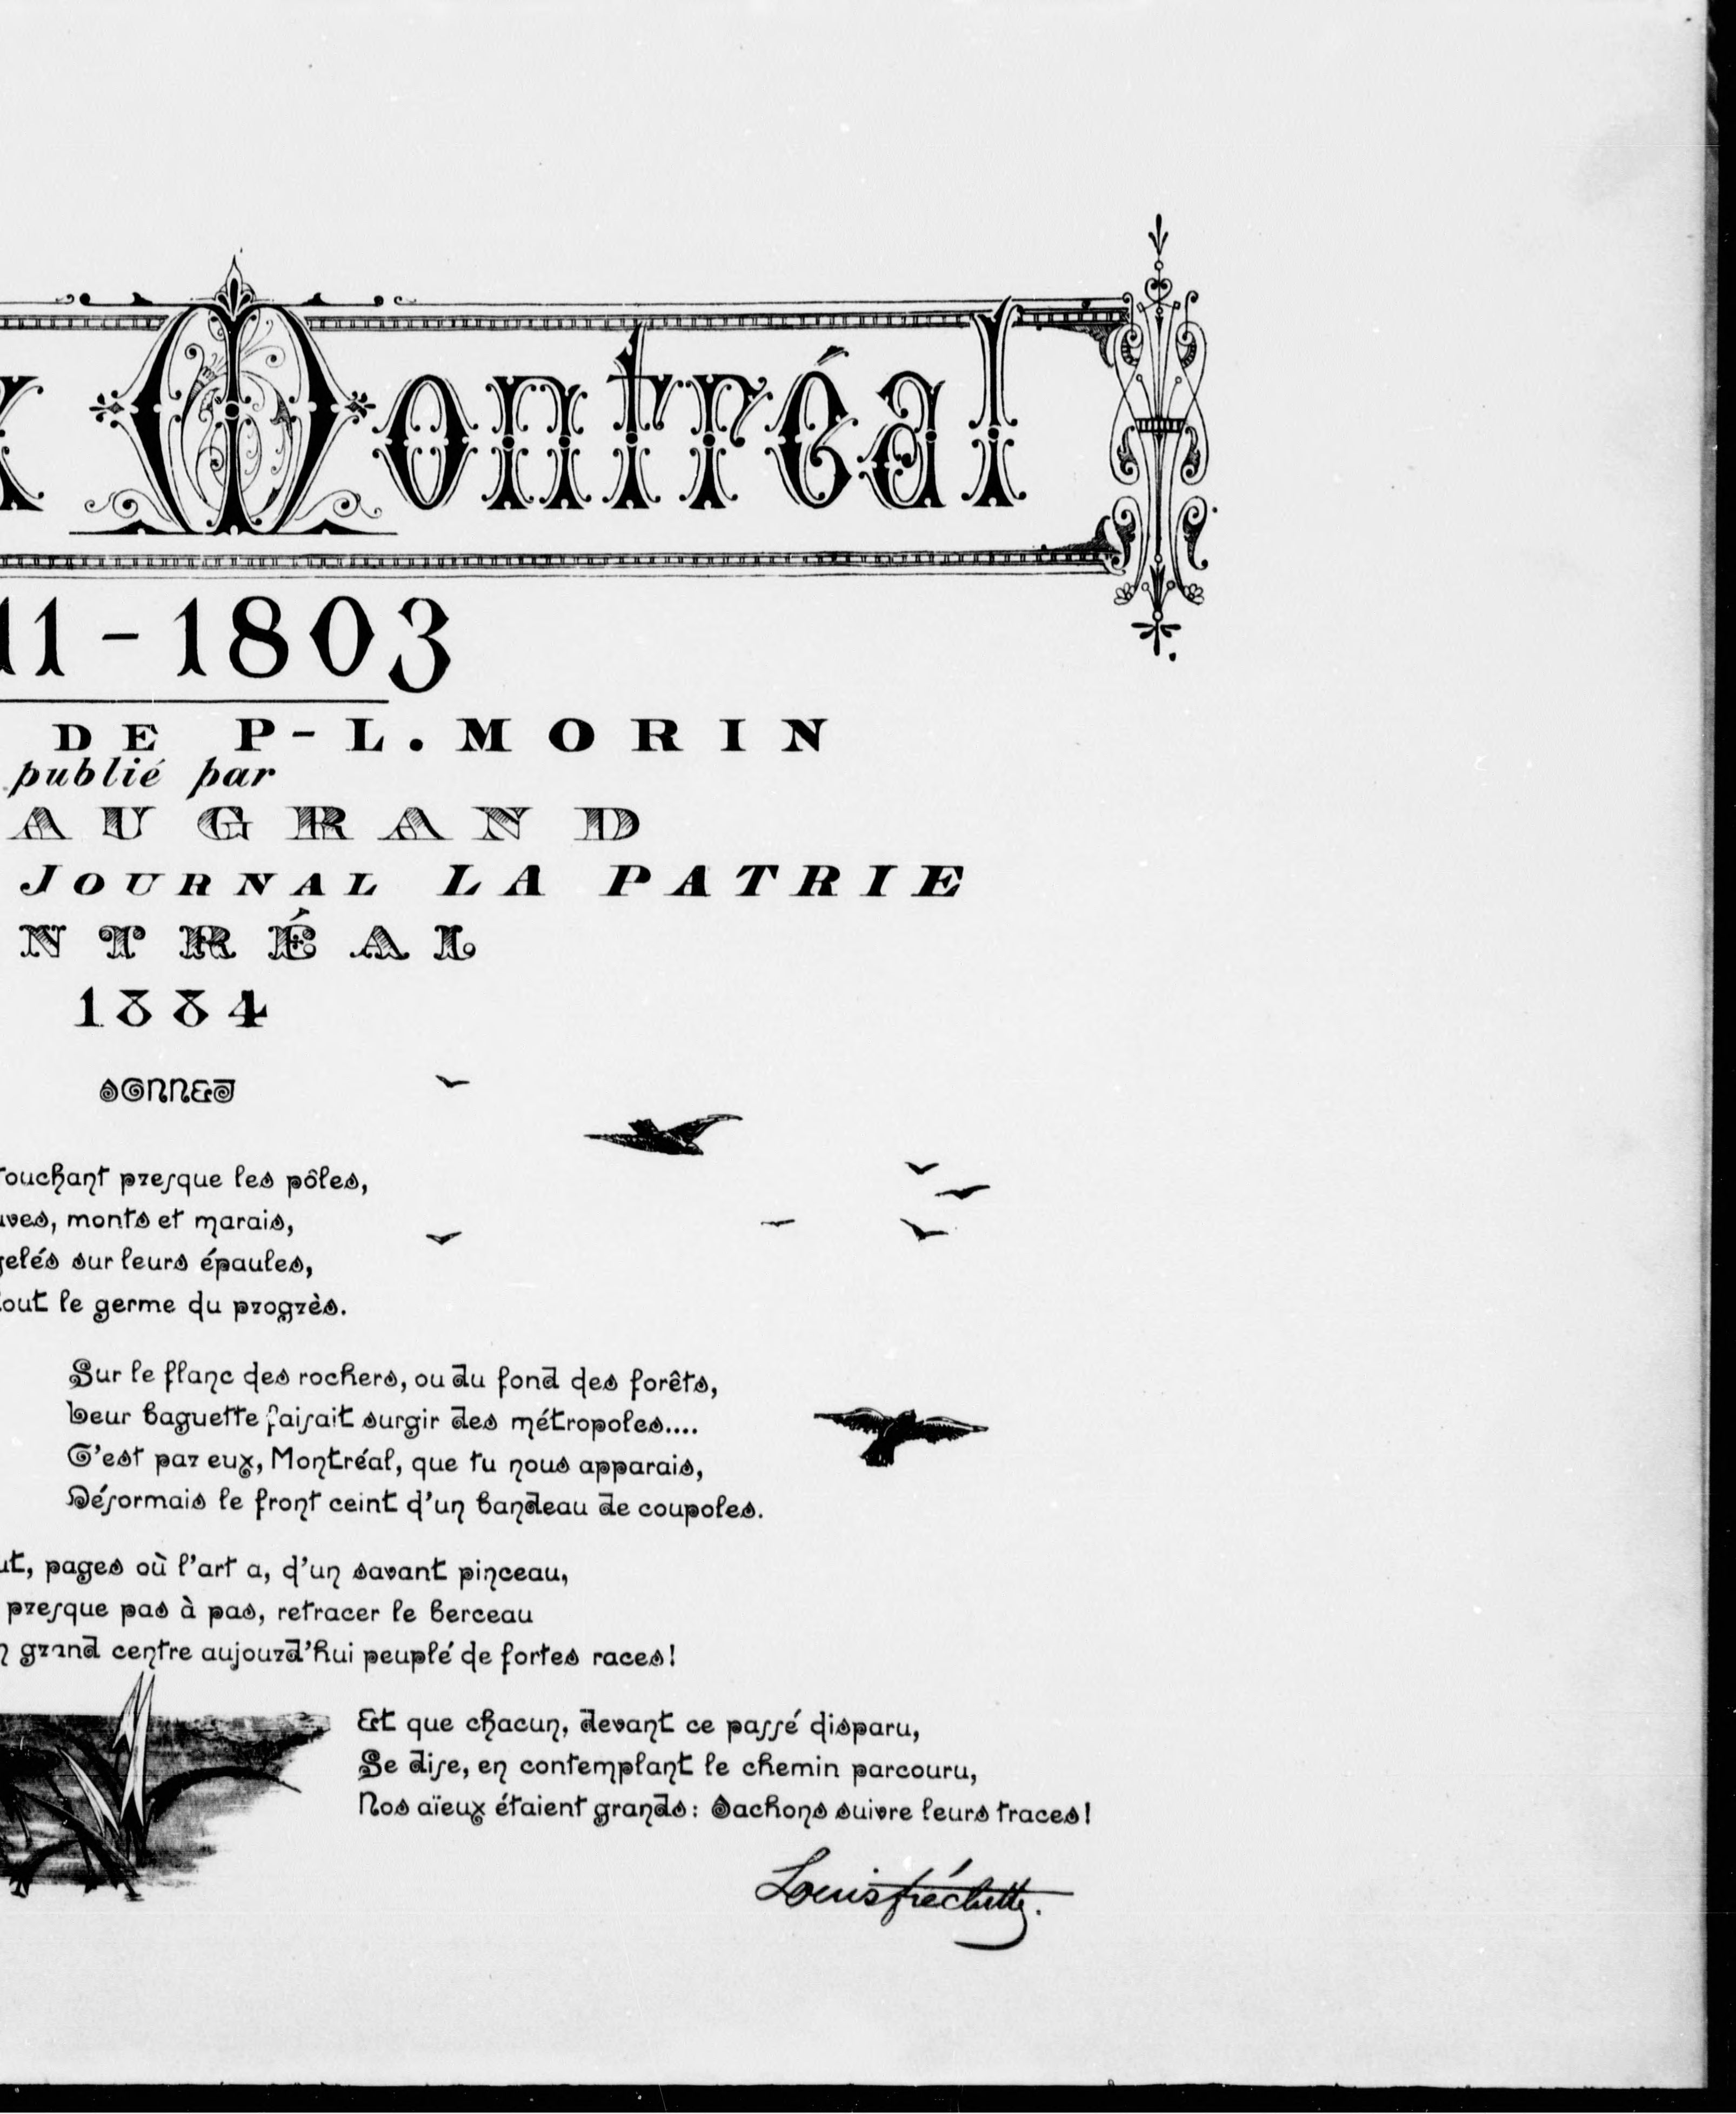 x Montréal
11-1803
DE P-L. MORIN
publié par
AUGRAND
JOURNAL LA PATRIE
NTRÉAL
1884
SONNET
touchant presque les pôles,
uves, monts et marais,
gelés sur leurs épaules,
tout le germe du progrès.
Sur le flanc des rochers, ou du fond des forêts,
Leur baguette faisait surgir des métropoles....
C'est par eux, Montréal, que tu nous apparais,
Désormais le front ceint d'un bandeau de coupoles.
ut, pages où l'art a, d'un savant pinceau,
presque pas à pas, retracer le berceau
n grand centre aujourd'hui peuplé de fortes races!
Et que chacun, devant ce passé disparu,
Se dise, en contemplant le chemin parcouru,
Nos aïeux étaient grands: Sachons suivre leurs traces!
Louis Fréchette.